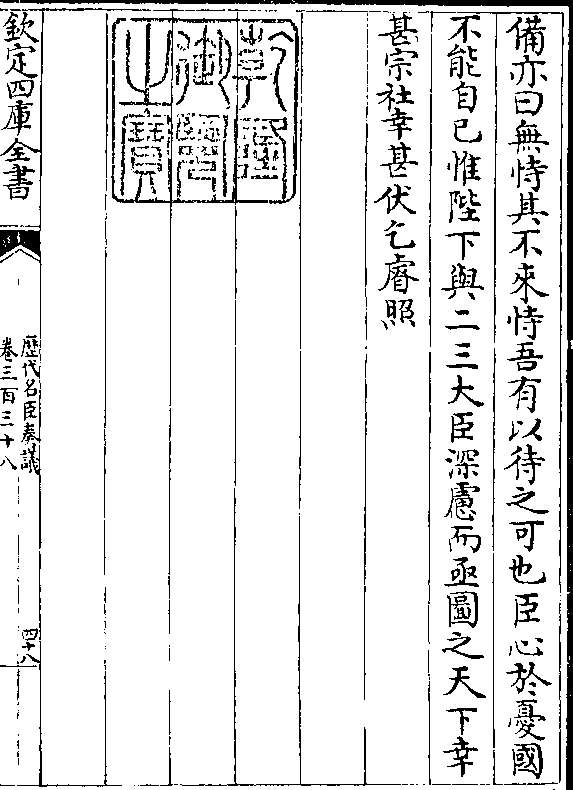 備亦曰無恃其不來恃吾有以待之可也臣心於憂國
不能自已惟陛下與二三大臣深慮而亟圖之天下幸
甚宗社幸甚伏乞睿照
乾隆
御覽
之寶
欽定四庫全書
歷代名臣奏議
卷三百三十八
四十八